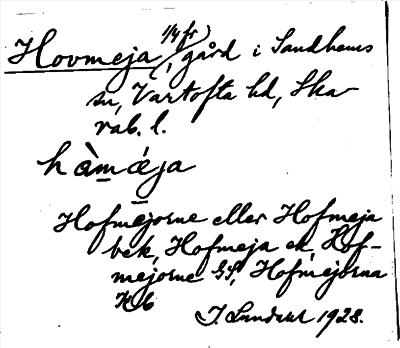 Hovmeja, 1/4 fr, gård i Sandhems
sn, Vartofta hd, Ska-
rab. l.
hàmǽja
Hofmejorne eller Hofmeja
bek, Hofmeja ek, Hof-
mejorne GS, Hofmejorna
Kb
J. Sundvall 1928.